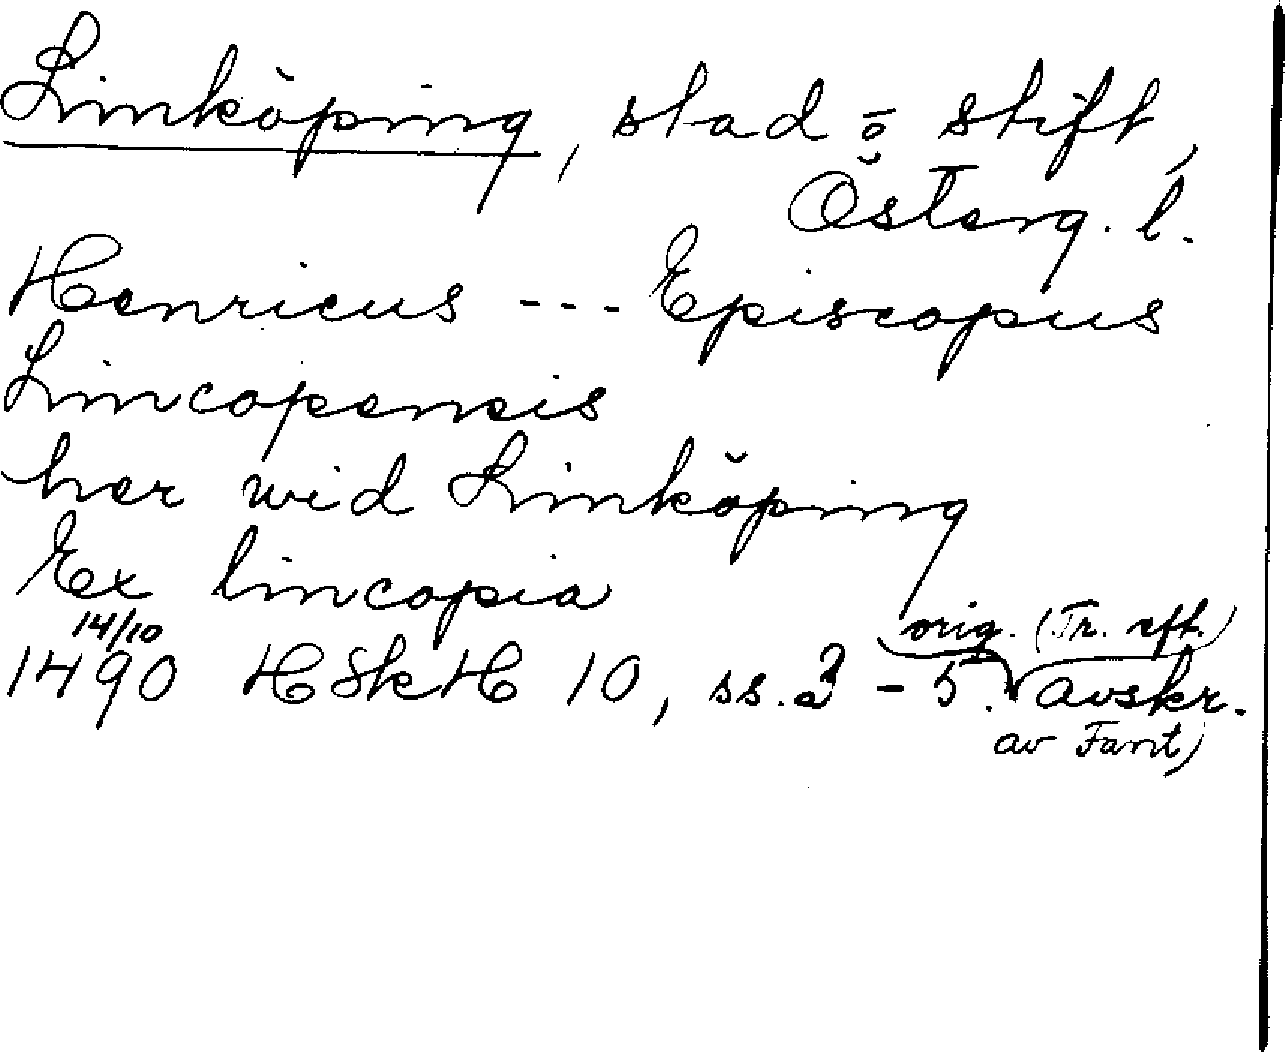 Linköping, stad o stift,
Österg. l.
Henricus --- Episcopus
Lincopensis
her wid Linköping
Ex lincopia
14/10
1490 HSkH 10, ss. 3-5. orig. (Tr. eft.
avskr.
av Fant)